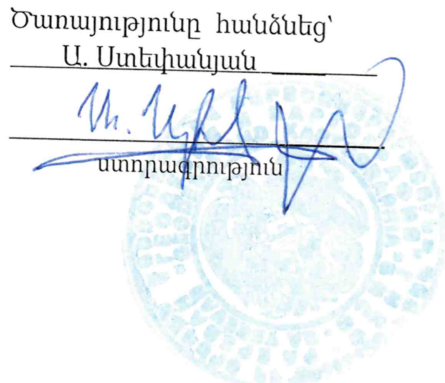 Ծառայությունը հանձնեց՝
Ա. Ստեփանյան
ստորագրություն